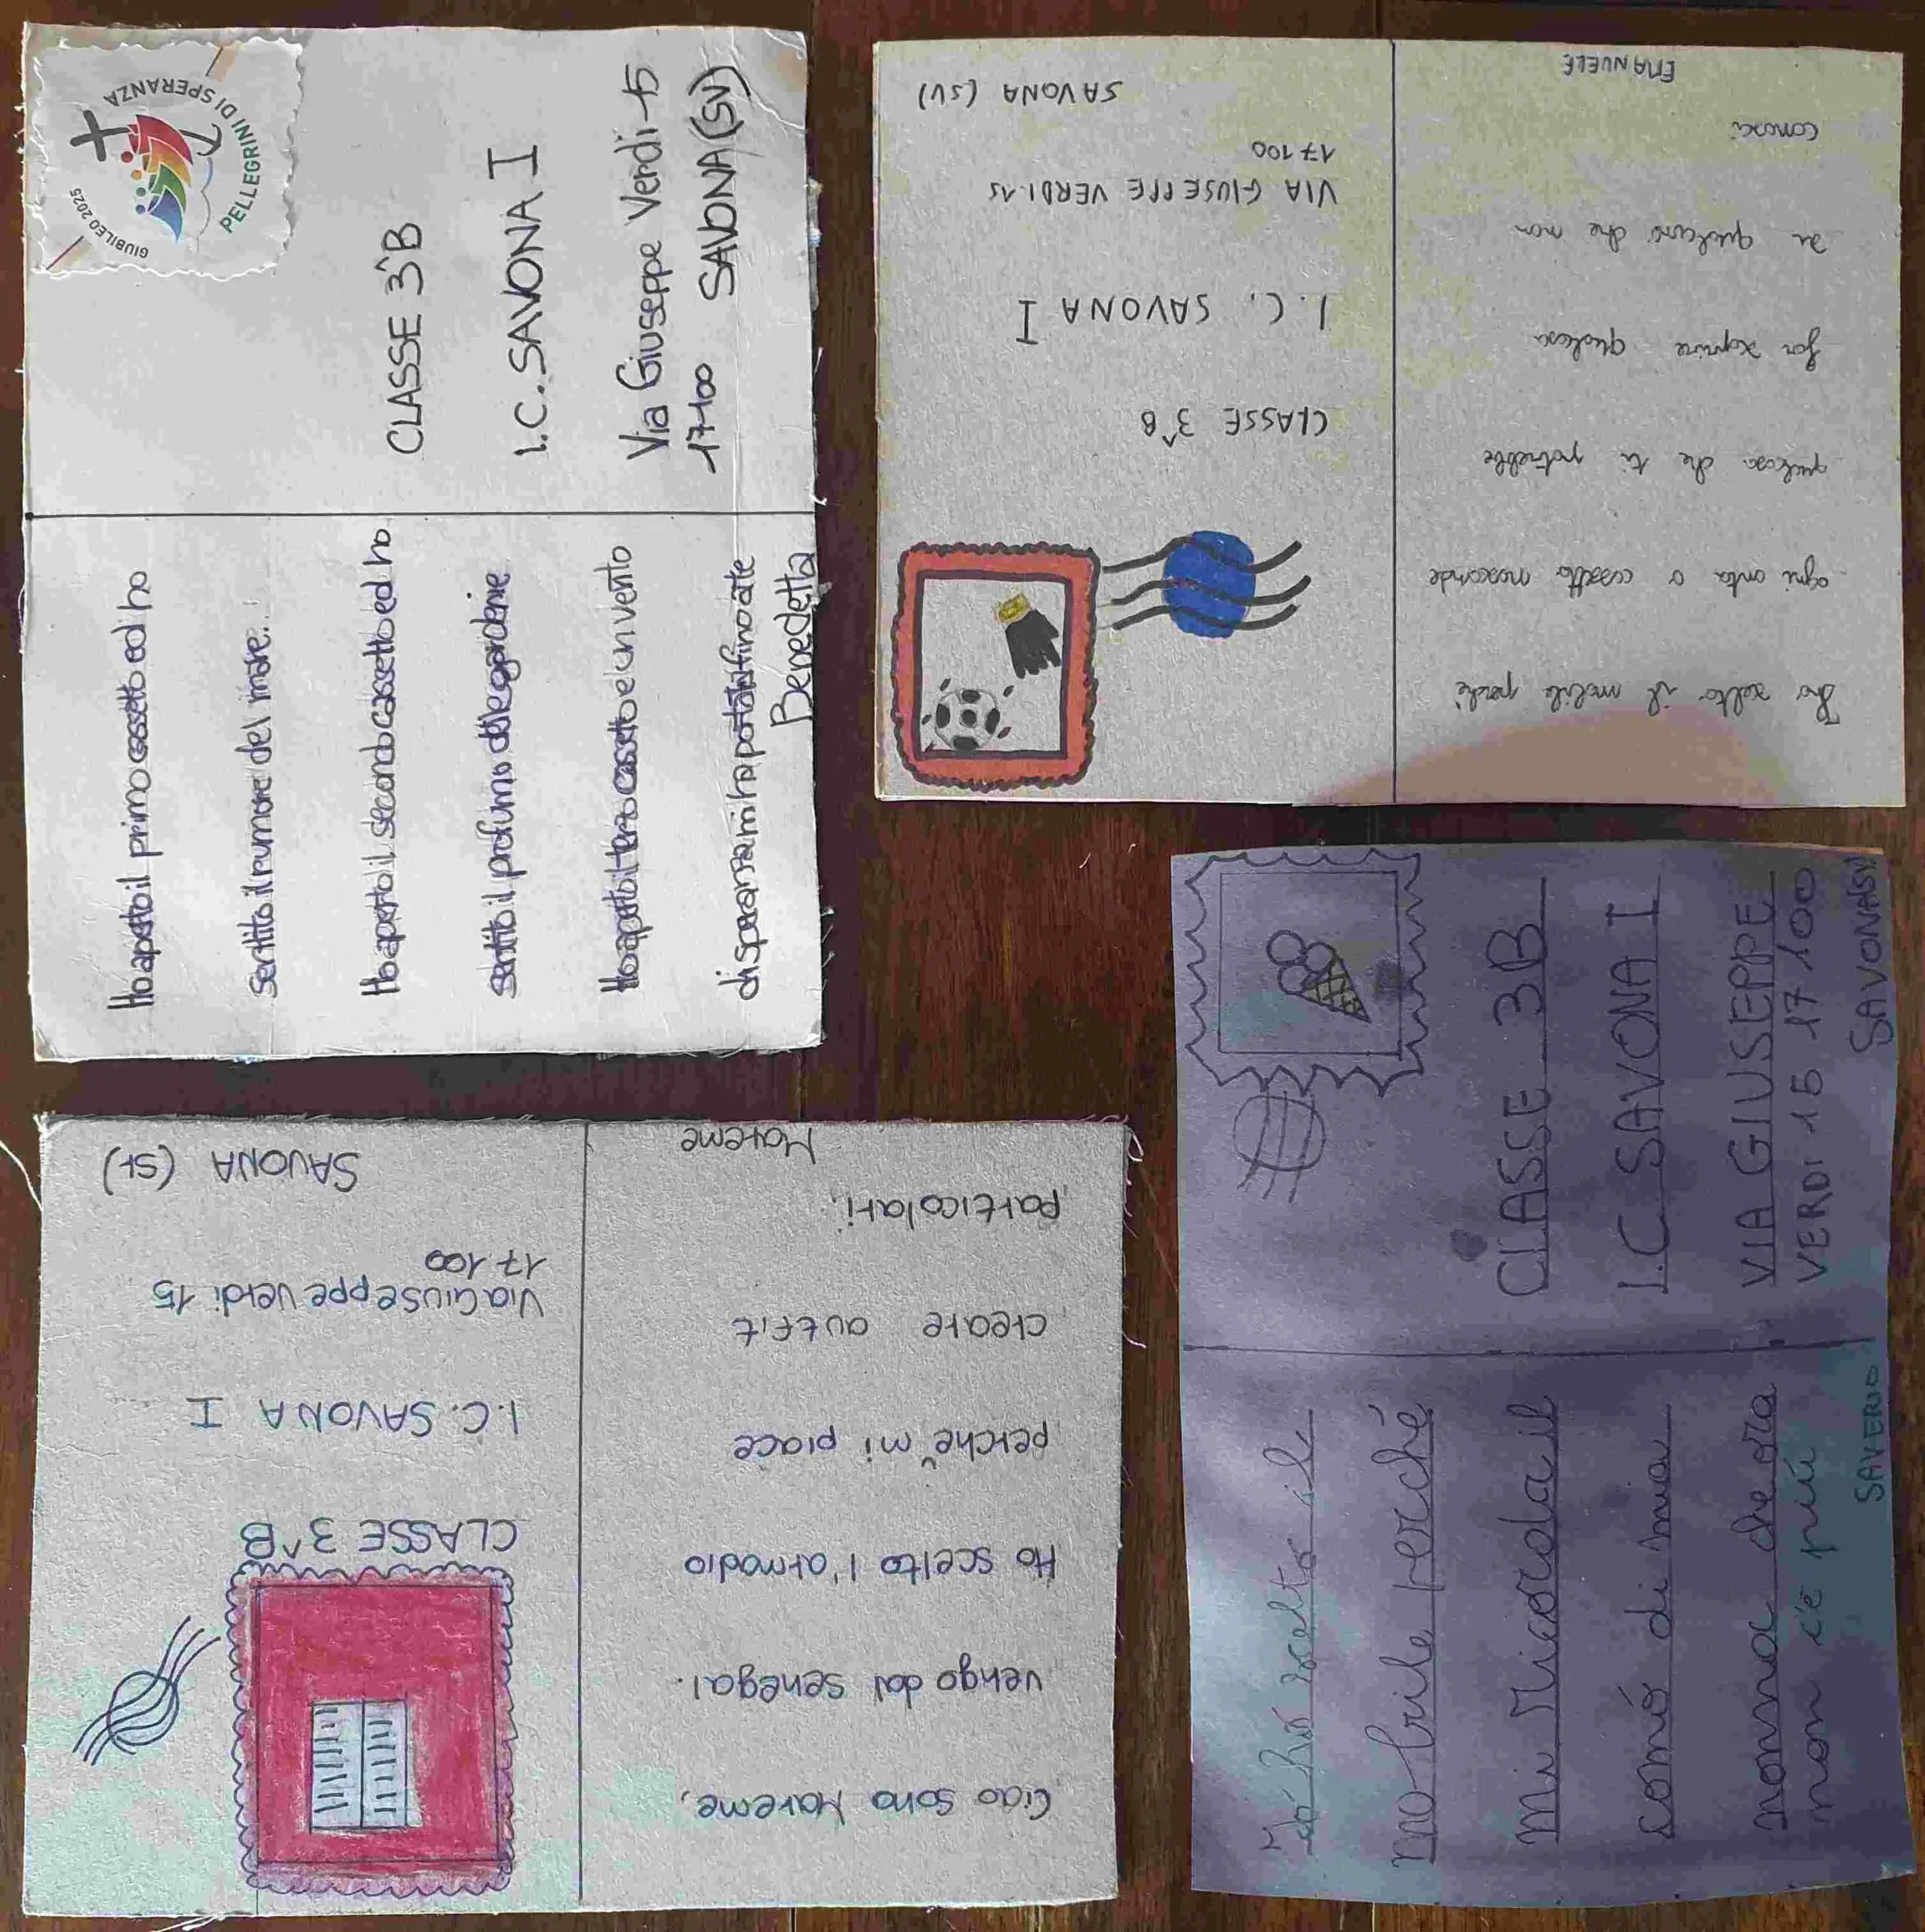 Ho aperto il primo cassetto ed ho
sentito il rumore del mare...
Ho aperto il secondo cassetto ed ho
sentito il profumo delle gardenie
Ho aperto il terzo cassetto e un vento
di speranza mi ha portato fino a te
Benedetta
GIUBILEO 2025
PELLEGRINI DI SPERANZA
CLASSE 3^B
I.C. SAVONA I
Via Giuseppe Verdi 15
17100 SAVONA (SV)
Ho scelto il mobile perché
ogni anta o cassetto nasconde
qualcosa che ti potrebbe
far scoprire qualcosa
su qualcuno che non
conosci
EMANUELE
CLASSE 3^B
I.C. SAVONA I
VIA GIUSEPPE VERDI 15
17100
SAVONA (SV)
Ciao sono Mareme,
vengo dal senegal.
Ho scelto l'armadio
perchè mi piace
creare outfit
particolari.
Mareme
CLASSE 3^B
I.C. SAVONA I
Via Giuseppe verdi 15
17100
SAVONA (SV)
Ió hó scelto il
mo bile perché
mi ricorda il
comó di mia
nonna che ora
non c'è piú
SAVERIO
CLASSE 3B
I.C SAVONA I
VIA GIUSEPPE
VERDI 15 17100
SAVONA(SV)